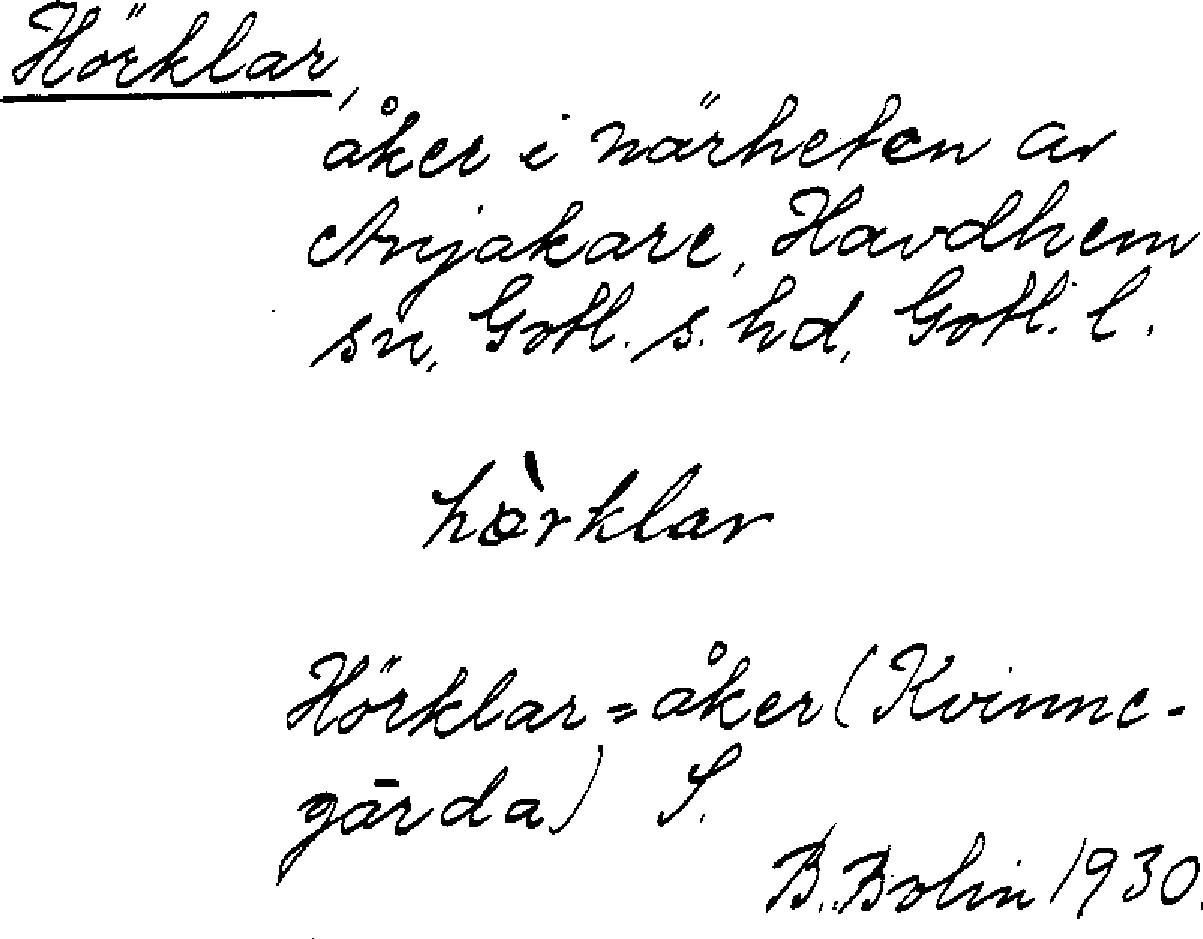 Hörklar,
åker i närheten av
Anjakare, Havdhem
sn, Gotl. s. hd, Gotl. l.
hòrklar
Hörklar = åker (Kvinne-
gārda) S.
B. Bolin 1930.